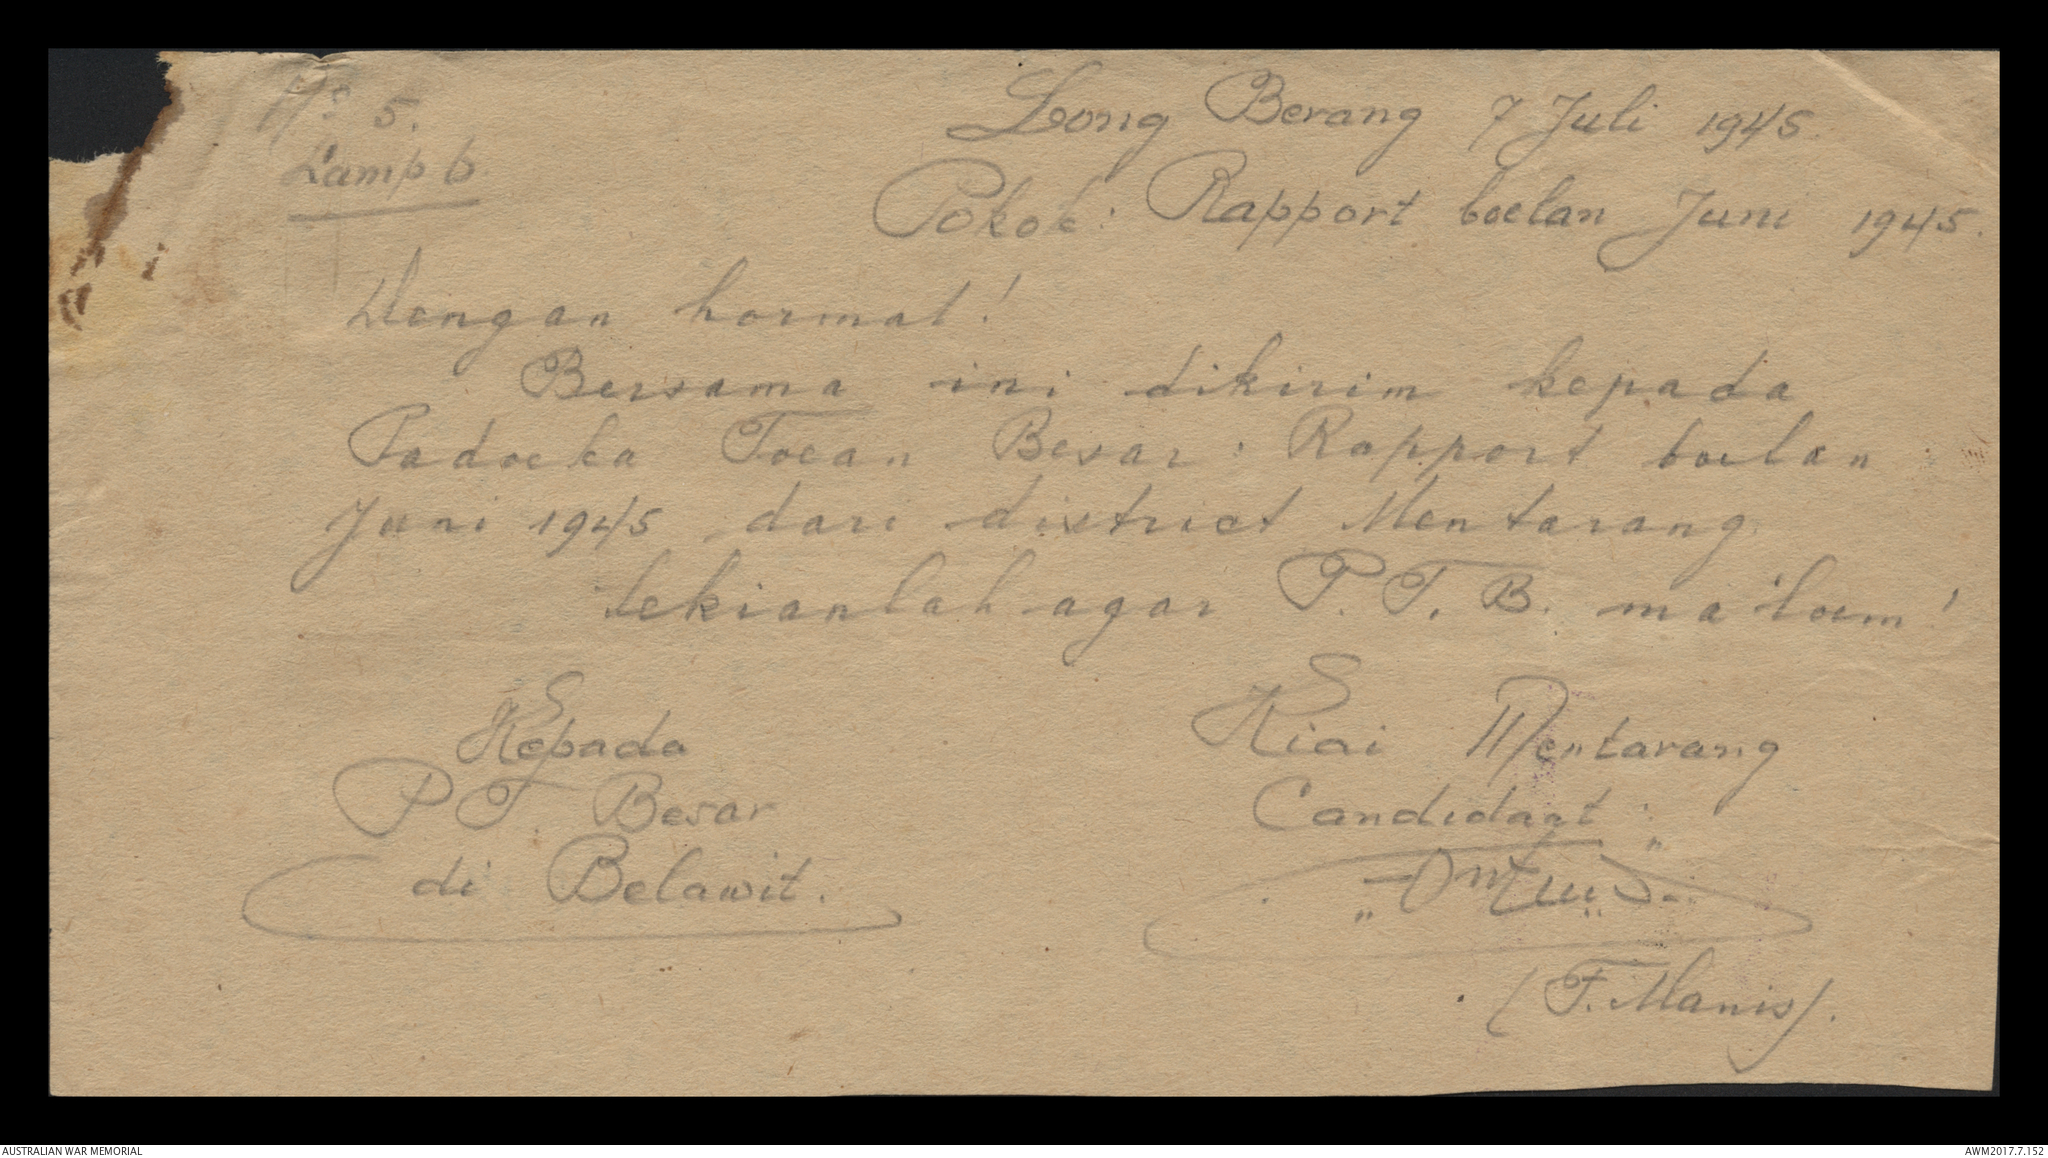 No 5.
Lamp b
Long Berang 7 Juli 1945
Pokok: Rapport boelan Juni 1945.
Dengan hormat!
Bersama ini dikirim kepada
Padoeka Toean Besar: Rapport boelan
Juni 1945 dari district Mentarang.
Sekianlah agar P. T. B. ma'loem!
Kepada
P T Besar
di Belawit.
Kiai Mentarang
Candidaat:
(F. Manis).
AUSTRALIAN WAR MEMORIAL
AWM2017.7.152